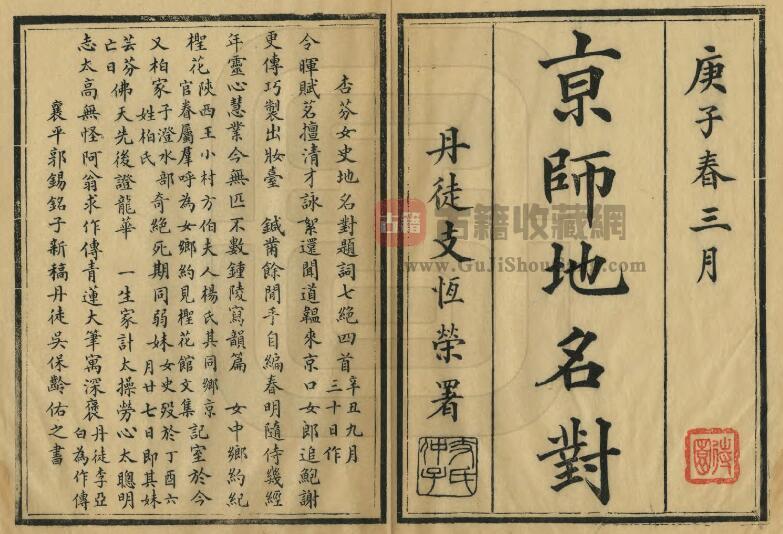 庚子春三月
亰師地名對
丹徒支恆榮署
支氏仲子
古籍
古籍收藏網
杏芬女史地名對題詞七絕四首辛丑九月三十日作
令暉賦茗擅清才詠絮還聞道韞來京口女郎追鮑謝
更傳巧製出妝臺 鍼黹餘閒手自編春明隨侍幾經
年靈心慧業今無匹不數鍾陵寫韻篇 女中鄉約紀
檉花陝西王小村方伯夫人楊氏其同鄉京官眷屬羣呼為女鄉約見檉花館文集記室於今
又柏家子澄水部姓柏氏奇絕死期同弱妹女史歿於丁酉六月廿七日即其妹
芸芬亡日佛天先後證龍華 一生家計太操勞心太聰明
志太高無怪阿翁求作傳青蓮大筆寓深褒丹徒李亞白為作傳
襄平郭錫銘子新稿丹徒吳保齡佑之書